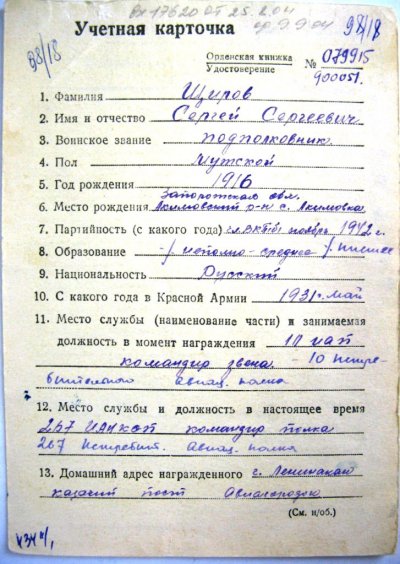 вх 17620 от 25.2.04
98/18
98/18
Учетная карточка
Орденская книжка
Удостоверение
№ 079915
900051.
1. Фамилия Щиров
2. Имя и отчество Сергей Сергеевич
3. Воинское звание подполковник
4. Пол мужской
5. Год рождения 1916
Запорожская обл.
6. Место рождения Акимовский р-н с. Акимовка
7. Партийность (с какого года) чл. ВКП(б) ноябрь 1942 г.
8. Образование среднее
9. Национальность Русский
10. С какого года в Красной Армии 1931 г. май
11. Место службы (наименование части) и занимаемая
должность в момент награждения 10 иап
командир звена. - 10 Истре-
бительного авиац. полка
12. Место службы и должность в настоящее время
267 командир полка
267 Истребит. Авиац. полка
13. Домашний адрес награжденного г. Ленинакан
казачий пост Авиагородок
(См. н/об.)